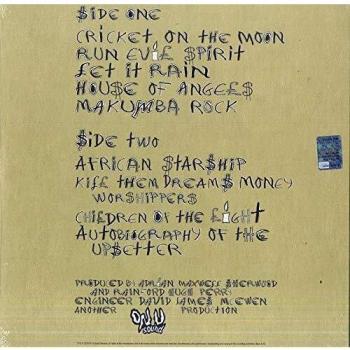 $IDE ONE
CRICKET, ON THE MOON
RUN EVIL $PIRIT
LET IT RAIN
HOU$E OF ANGEL$
MAKUMBA ROCK
$IDE TWO
AFRICAN $TAR$HIP
KILL THEM DREAM$ MONEY
WOR$HIPPER$
CHILDREN OF THE LIGHT
AUTOBIOGRAPHY OF THE
UP$ETTER
PRODUCED BY ADRIAN MAXWELL $HERWOOD
AND RAINFORD HUGH PERRY
ENGINEER DAVID JAME$ MCEWEN
ANOTHER ON.U SOUND PRODUCTION